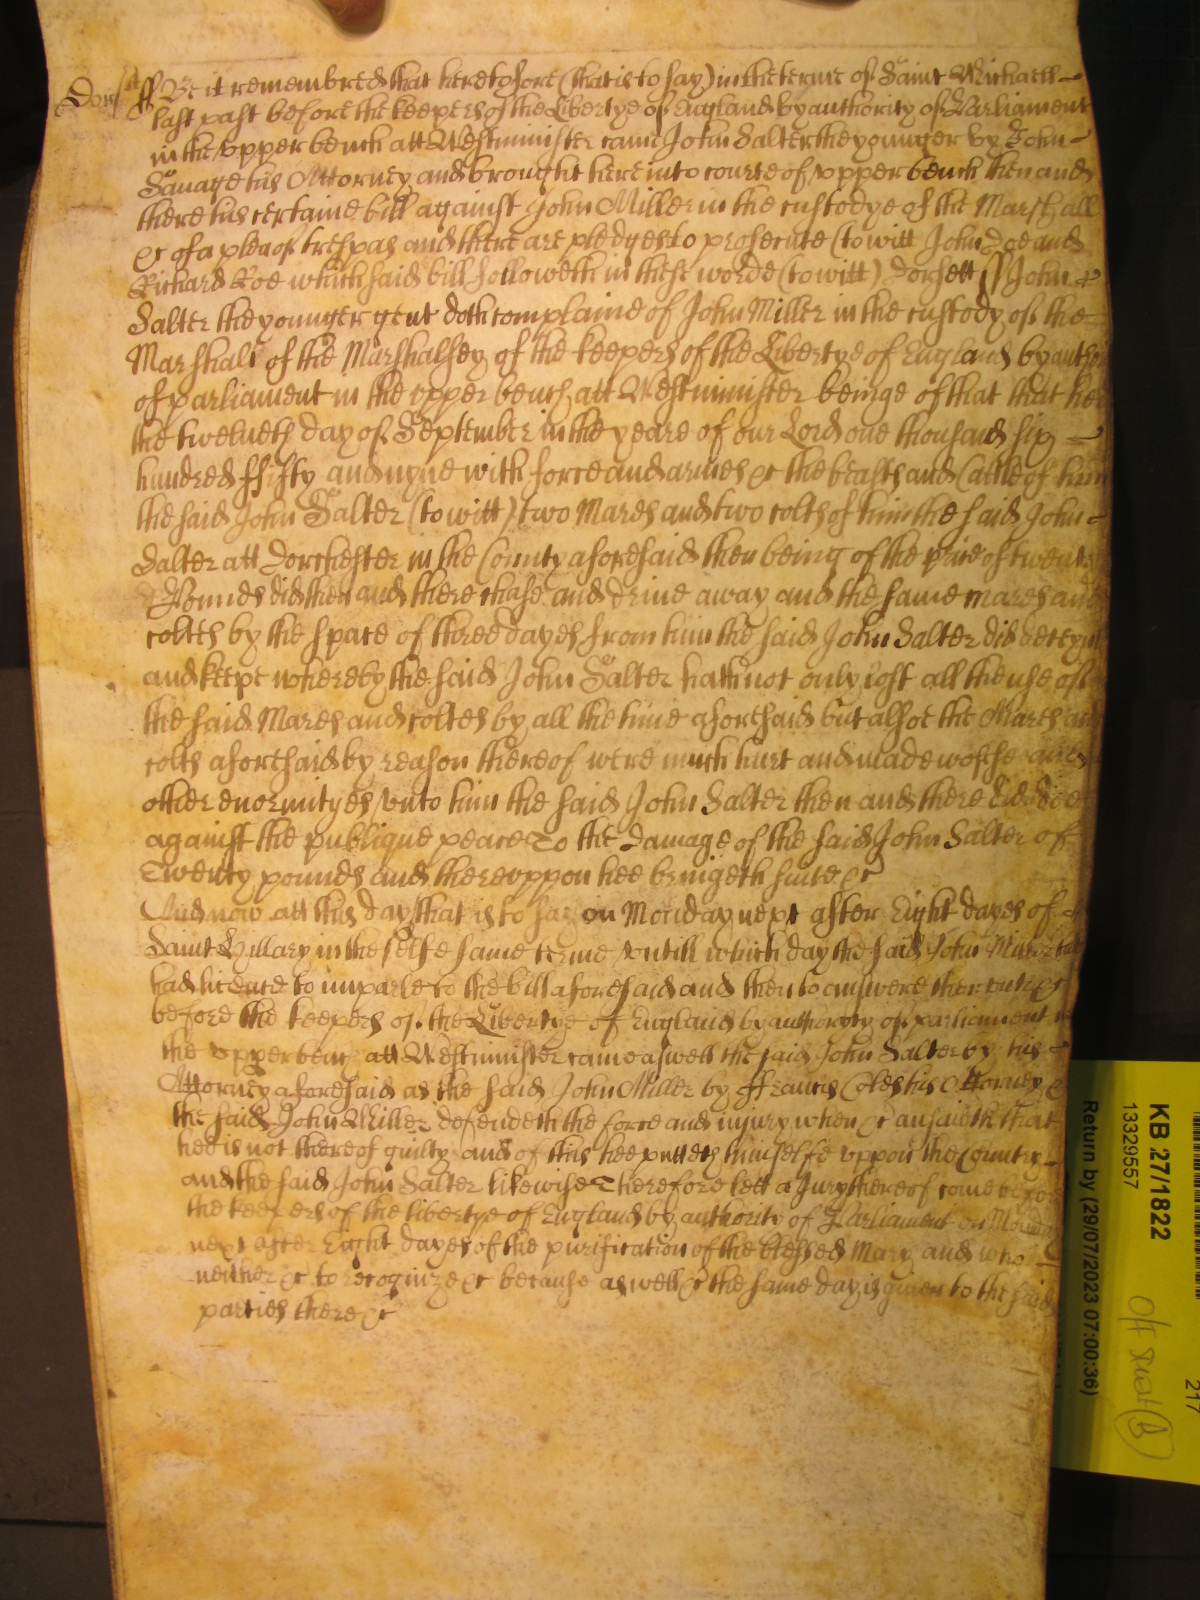 Dorsett ss Be it remembred that heretofore (that is to say) in the terme of Saint Michaell
last past before the keepers of the Libertye of England by authority of Parliament
in the vpper bench att Westminister came John Salter the younger by John
Savage his Attorney and brought here into courte of vpper bench then and
there his certaine bill against John Miller in the custodye of the Marshall
&c of a plea of trespas and there are pledges to prosecute (to witt John Doe and
Richard Roe which said bill followeth in these words (to witt) Dorsett ss John
Salter the younger gent doth complaine of John Miller in the custody of the
Marshall of the Marshalsey of the keepers of the Libertye of England by author
of parliament in the vpper bench att Westminister beinge of that that hee
the twelueth day of September in the yeare of our Lord one thousand six
hundred ffifty and nyne with force and armes &c the beasts and Cattle of him
the said John Salter (to witt) two Mares and two colts of him the said John
Salter att Dorchester in the County aforesaid then being of the price of twenty
Pounds did then and there chase and drive away and the same mares and
coltes by the space of three dayes from him the said John Salter did deteyne
and keepe whereby the said John Salter hath not only lost all the use of
the said Mares and coltes by all the time aforesaid but alsoe the Mares and
colts aforesaid by reason thereof were much hurt and made worsse and
other enormityes vnto him the said John Salter then and there did doe
against the publique peace To the damage of the said John Salter of
Twenty pounds and therevppon hee bringeth suite &c
And now att this day that is to say on Monday next after Eight dayes of
Saint Hillary in the selfe same terme vntill which day the said John Miller
had licence to imparle to the bill aforesaid and then to answere therevnto &c
before the keepers of the Libertye of England by authority of parliament in
the vpper bench att Westminister came aswell the said John Salter by his
Attorney aforesaid as the said John Miller by ffrancis Coles his Attorney &
the said John Miller defendeth the force and injury when &c and saith that
hee is not thereof guilty and of this hee putteth himselfe vppon the Country
and the said John Salter likewise Therefore lett a Jury thereof come before
the keepers of the libertye of England by authority of Parliament on Monday
next after Eight dayes of the purification of the blessed Mary and who
neither &c to recognize &c because aswell &c the same day is given to the said
parties there &c
KB 27/1822
13329557
Return by (29/07/2023 07:00:36)
217